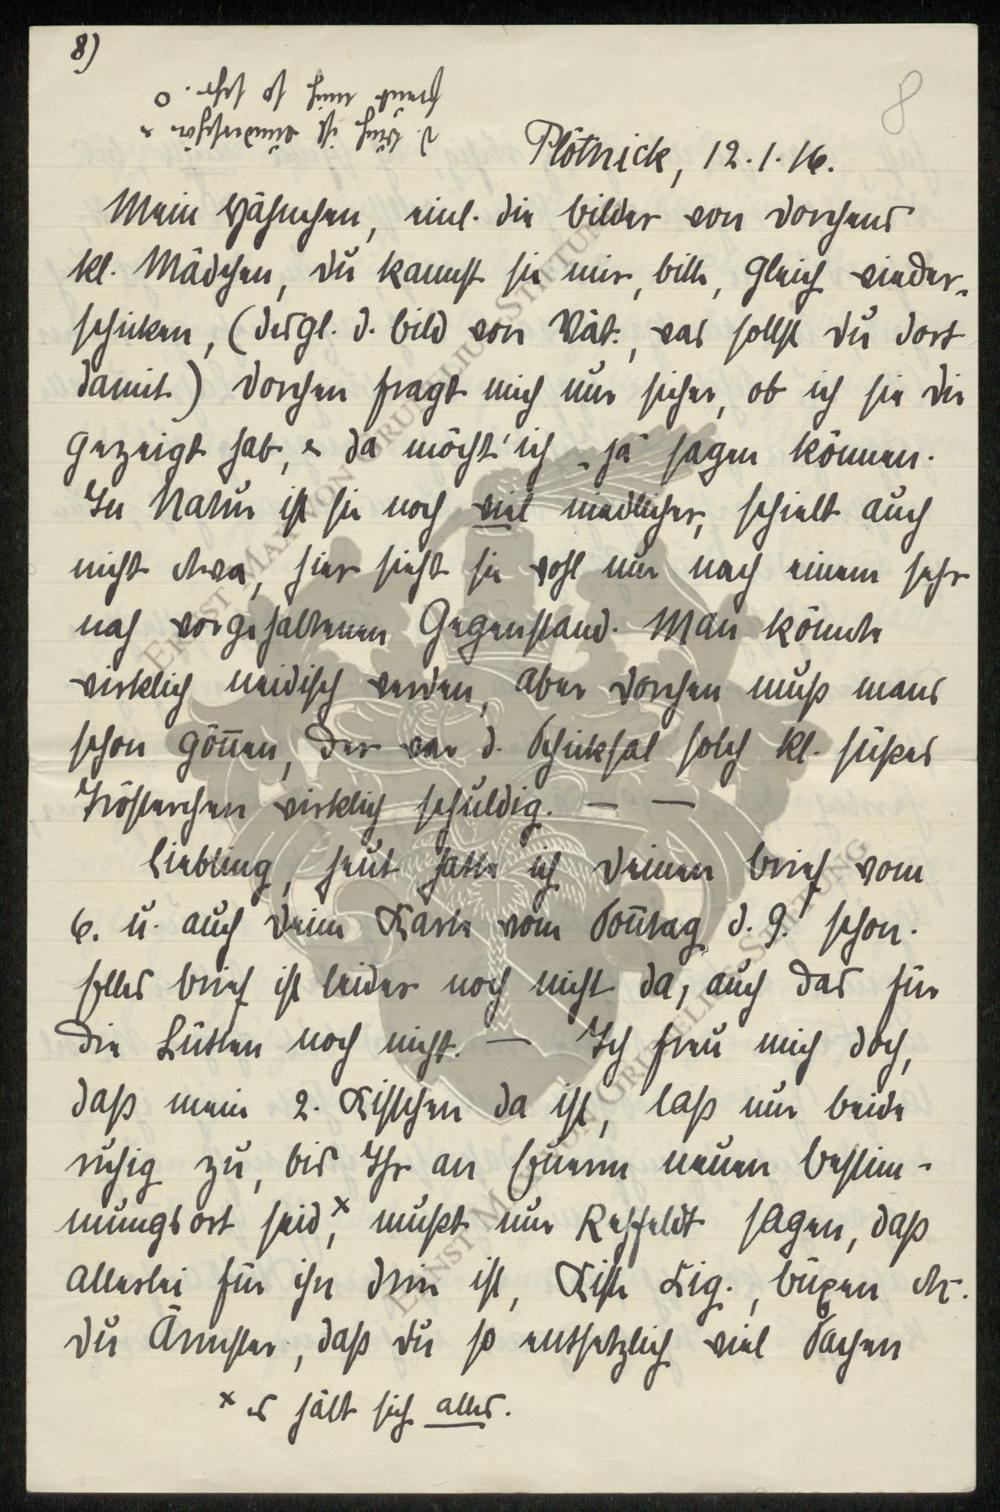 8)
8
d. Buch ist wunderschön &
freut mich so sehr. o
Plötnick, 12.1.16.
Mein Hähnchen, einl. die Bilder von Dorchens
kl. Mädchen, Du kannst sie mir, bitte, gleich wieder-
schicken, (desgl. d. Bild von Vat., was sollst Du dort
damit) Dorchen fragt mich nur sicher, ob ich sie Dir
gezeigt hab, & da möcht' ich „ja" sagen können.
In Natur ist sie noch viel niedlicher, schielt auch
nicht etwa, hier sieht sie wohl nur nach einem sehr
nah vorgehaltenen Gegenstand. Man könnte
wirklich neidisch werden, aber Dorchen muß mans
schon gönnen, der war d. Schicksal solch kl. süßes
Trösterchen wirklich schuldig. — —
Liebling, heut hatte ich Deinen Brief vom
6. u. auch Deine Karte vom Sontag d. 9.! schon.
Elles Brief ist leider noch nicht da, auch das für
die Lütten noch nicht. — Ich freu mich doch,
daß mein 2. Kistchen da ist, laß nur beide
ruhig zu, bis Ihr an Euerm neuen Bestim-
mungsort seid,x mußt nur Rehfeldt sagen, daß
allerlei für ihn drin ist, Kiste Zig., Büxen etc.
Du Ärmster, daß Du so entsetzlich viel Sachen
x es hält sich alles.
ERNST MAX VON GRUNELIUS-STIFTUNG
ERNST MAX VON GRUNELIUS-STIFTUNG